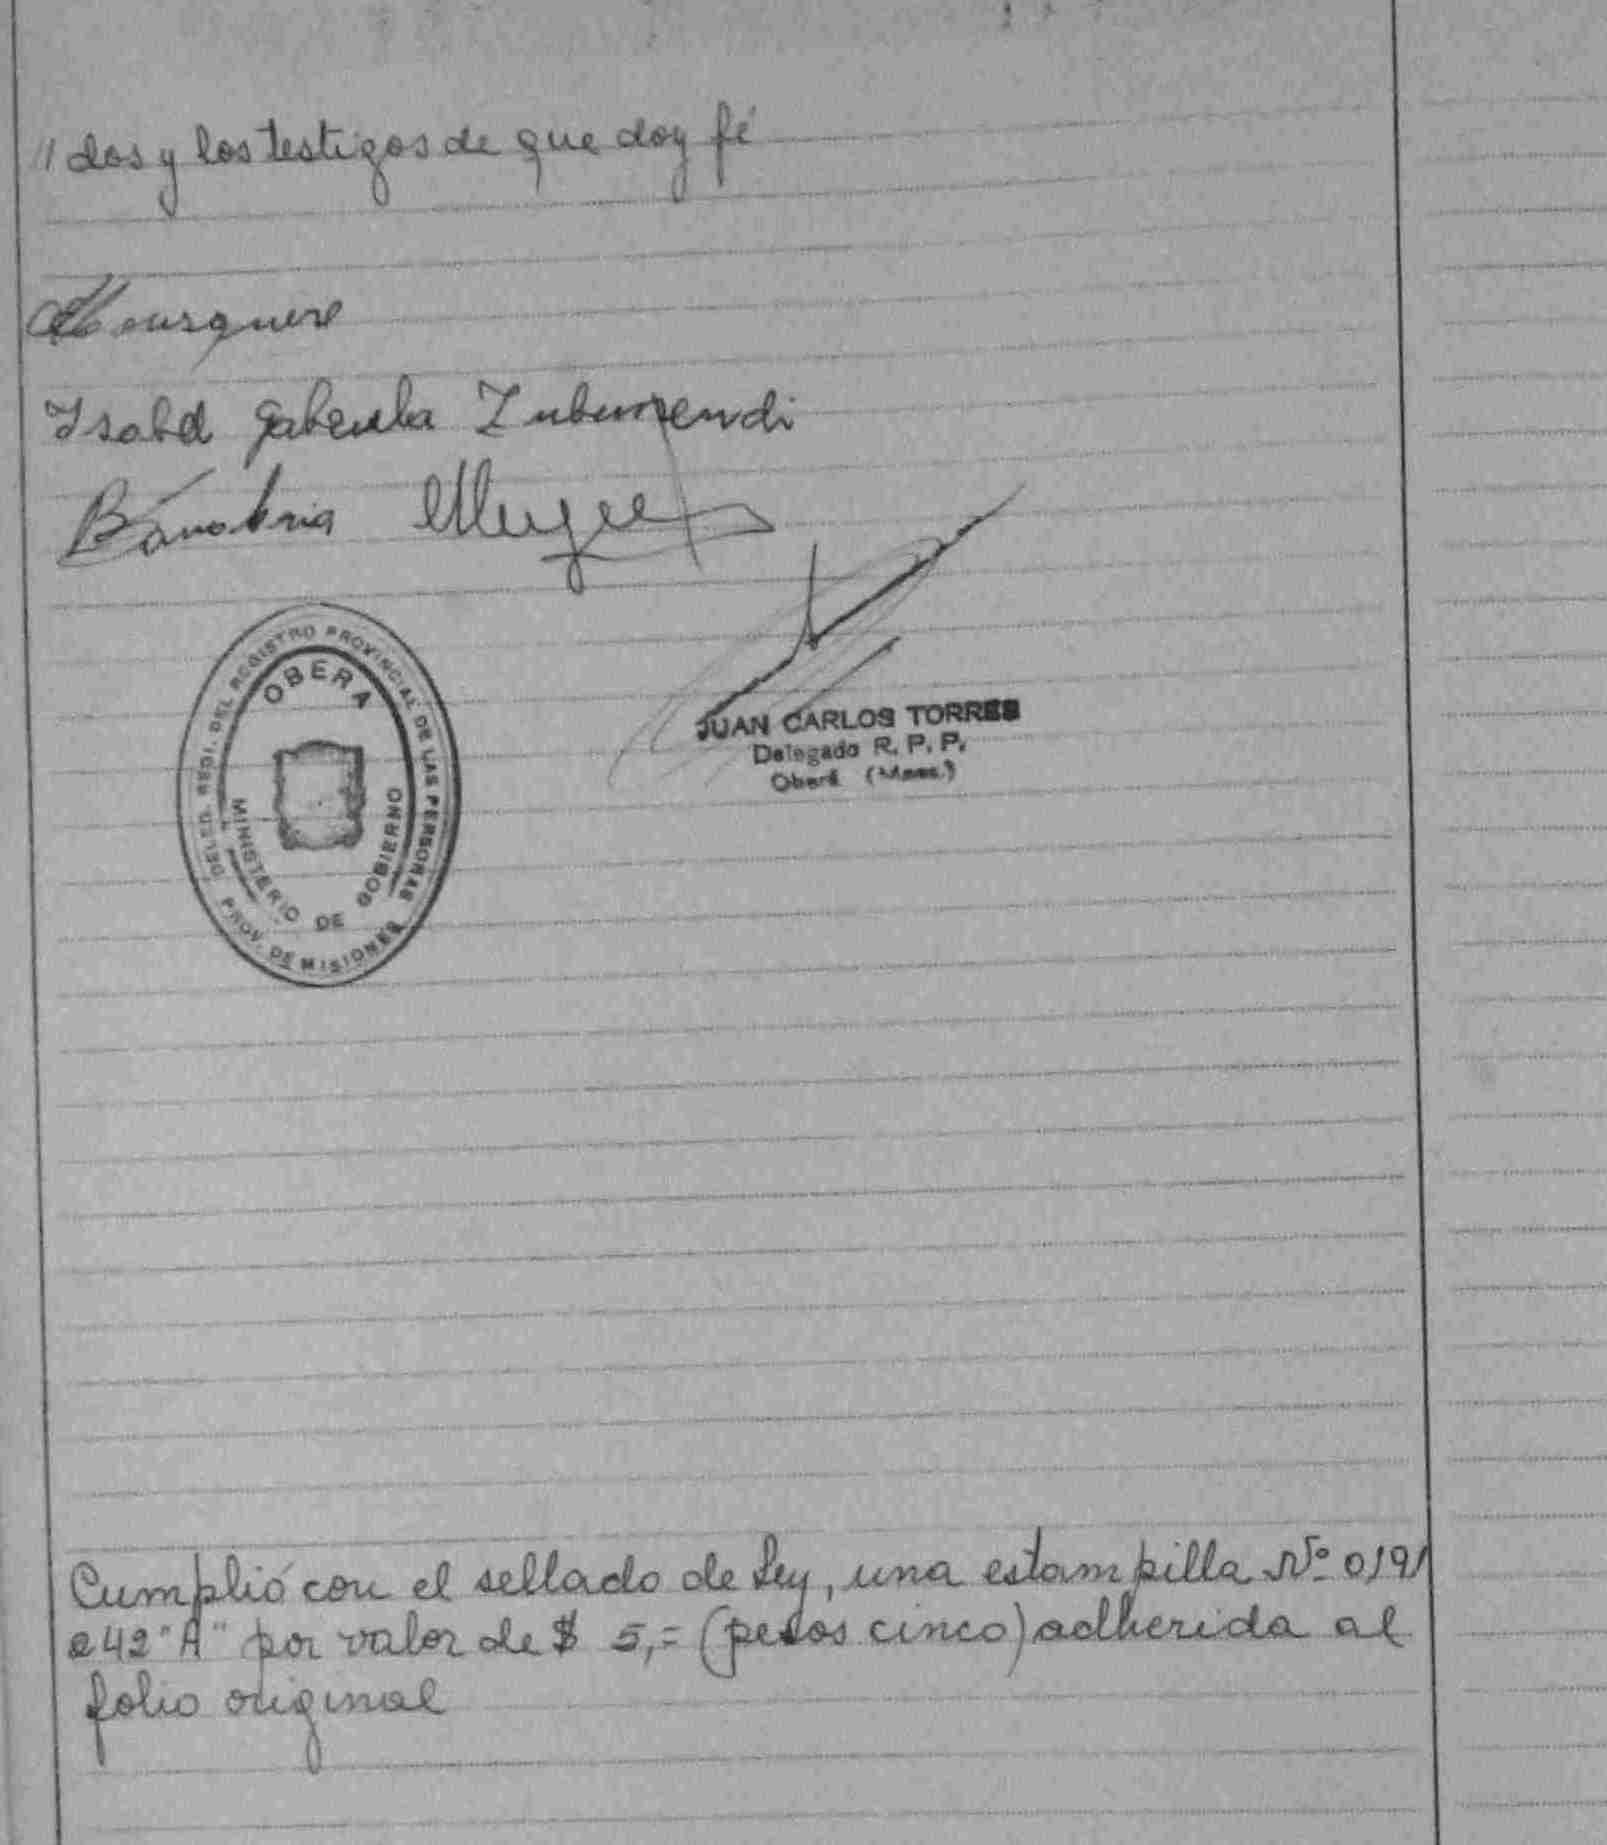 // dos y los testigos de que doy fé
Isabel Gabriela Zubimendi
OBERA
DELEG. REGI. DEL REGISTRO PROVINCIAL DE LAS PERSONAS
MINISTERIO DE GOBIERNO
PROV. DE MISIONES
JUAN CARLOS TORRES
Delegado R. P. P.
Oberá (Mnes.)
Cumplió con el sellado de Ley, una estampilla Nº 0191
242 "A" por valor de $ 5,= (pesos cinco) adherida al
folio original